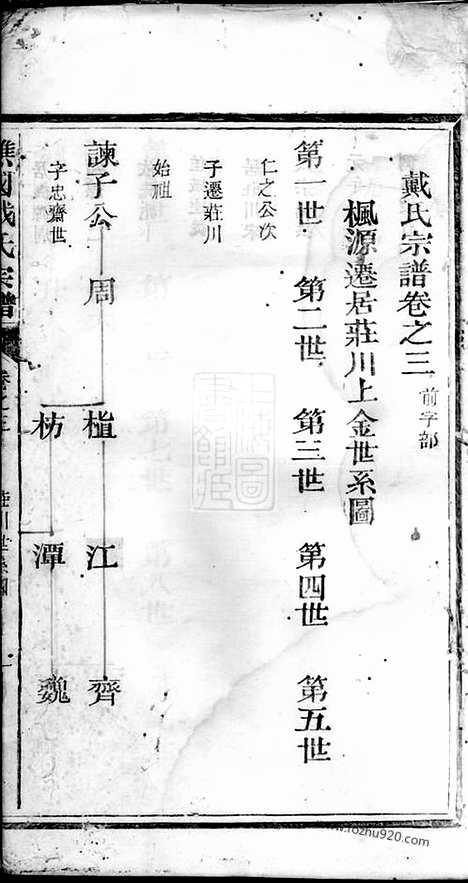 戴氏宗譜卷之三 前字部
楓源遷居莊川上金世系圖
第一世 第二世 第三世 第四世 第五世
仁之公次
子遷莊川
始祖
諫子公 周 楂 江 齊
字忠齋世
枋 潭 巍
戴氏宗譜 卷之三 莊川世系圖 一
www.rozhu920.com